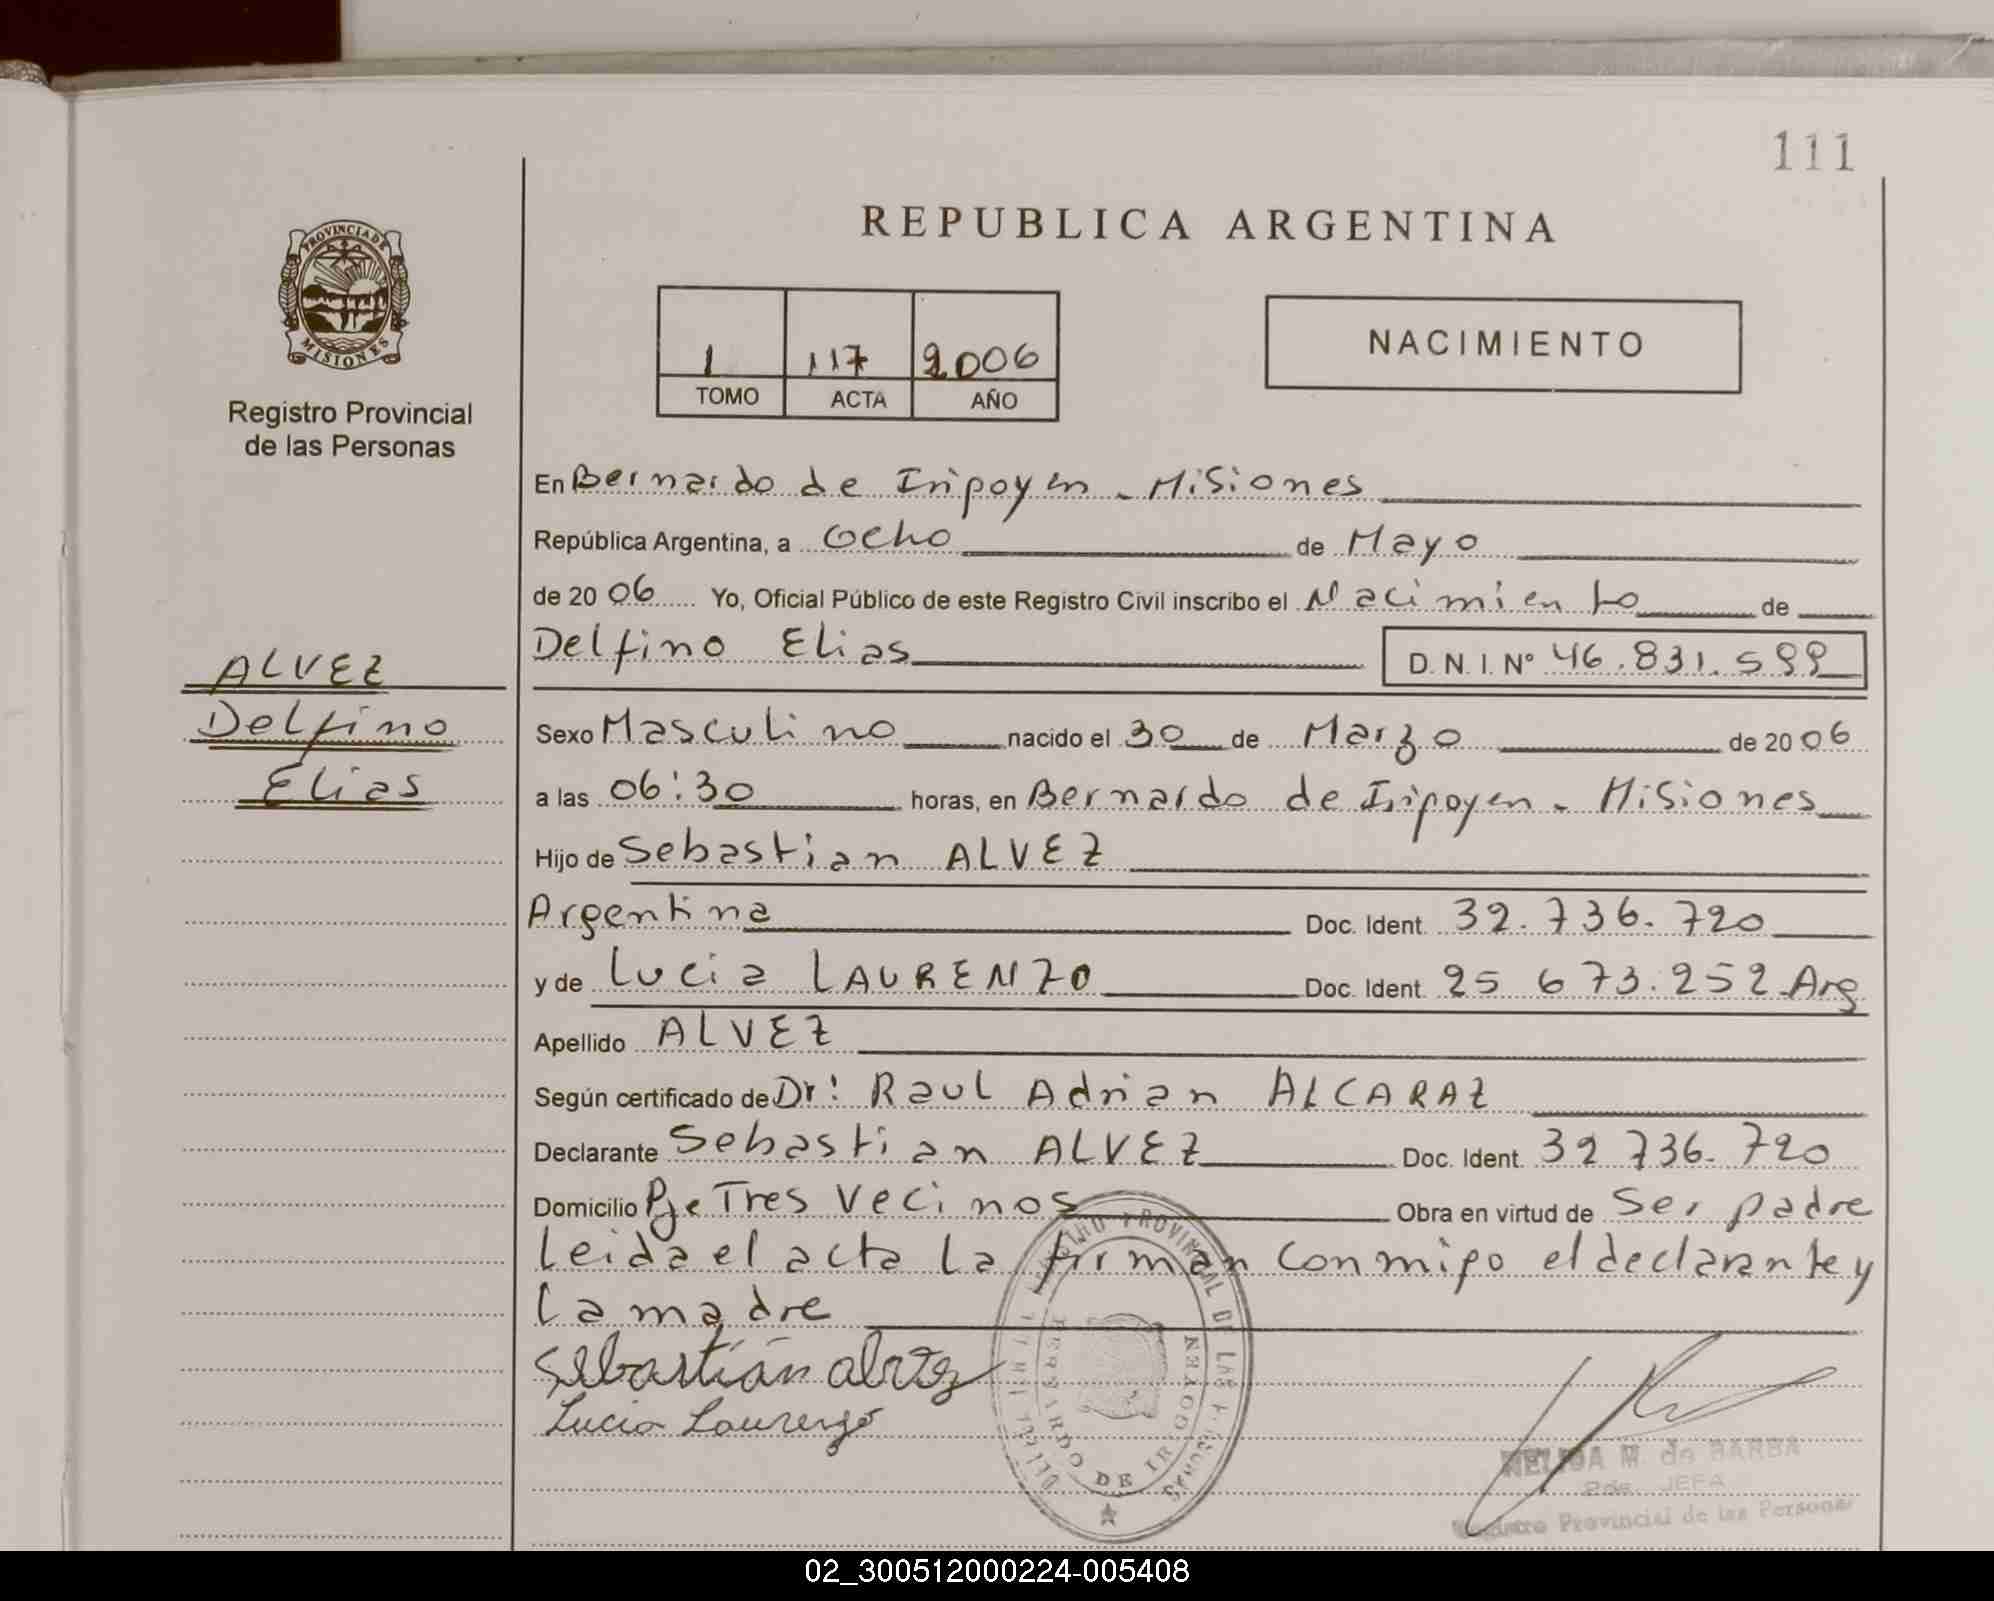 111
PROVINCIA DE
MISIONES
Registro Provincial
de las Personas
REPUBLICA ARGENTINA
1 117 2006
TOMO ACTA AÑO
NACIMIENTO
En Bernardo de Iripoyen - Misiones
República Argentina, a Ocho de Mayo
de 2006 Yo, Oficial Público de este Registro Civil inscribo el Nacimiento de
Delfino Elias D.N.I. Nº 46.831.599
ALVEZ
Delfino
Elias
Sexo Masculino nacido el 30 de Marzo de 2006
a las 06:30 horas, en Bernardo de Iripoyen - Misiones
Hijo de Sebastian ALVEZ
Argentina Doc. Ident. 32.736.720
y de Lucia LAURENZO Doc. Ident. 25 673.252 Arg
Apellido ALVEZ
Según certificado de Dr: Raul Adrian ALCARAZ
Declarante Sebastian ALVEZ Doc. Ident. 32 736.720
Domicilio Pje Tres Vecinos Obra en virtud de Ser padre
Leida el acta la firman conmipo el declarante y
la madre
Sebastián alvez
Lucia Laurenzo
PROVINCIAL DE LAS PERSONAS
BERNARDO DE IRIGOYEN
NELIDA M. de BARBA
JEFA
Registro Provincial de las Personas
02_300512000224-005408